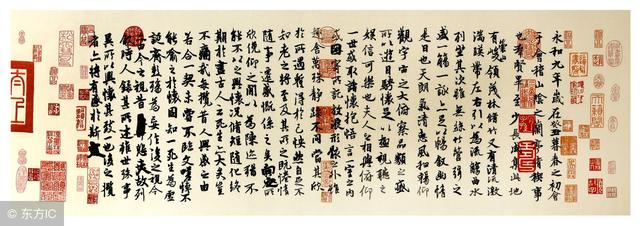 永和九年歲在癸丑暮春之初會
于會稽山陰之蘭亭脩稧事
也羣賢畢至少長咸集此地
有崇山峻領茂林脩竹又有清流激
湍暎帶左右引以為流觴曲水
列坐其次雖無絲竹管弦之
盛一觴一詠亦足以暢敘幽情
是日也天朗氣清惠風和暢仰
觀宇宙之大俯察品類之盛
所以遊目騁懷足以極視聽之
娛信可樂也夫人之相與俯仰
一世或取諸懷抱悟言一室之內
或因寄所託放浪形骸之外雖
趣舍萬殊靜躁不同當其欣
於所遇蹔得於己怏然自足不
知老之將至及其所之既惓情
隨事遷感慨係之矣向之所
欣俛仰之閒以為陳迹猶不
能不以之興懷況脩短隨化終
期於盡古人云死生亦大矣豈
不痛哉每攬昔人興感之由
若合一契未嘗不臨文嗟悼不
能喻之於懷固知一死生為虛
誕齊彭殤為妄作後之視今
亦由今之視昔悲夫故列
敘時人錄其所述雖世殊事
異所以興懷其致一也後之攬
者亦將有感於斯文
© 东方IC